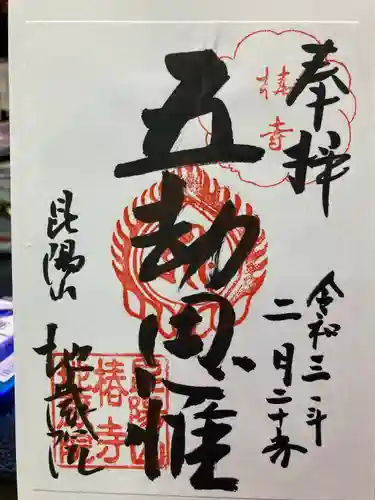 奉拝
椿
寺
令和三年
二月二十六
五劫思惟
昆陽山
地蔵院
昆陽山
椿寺
地蔵院